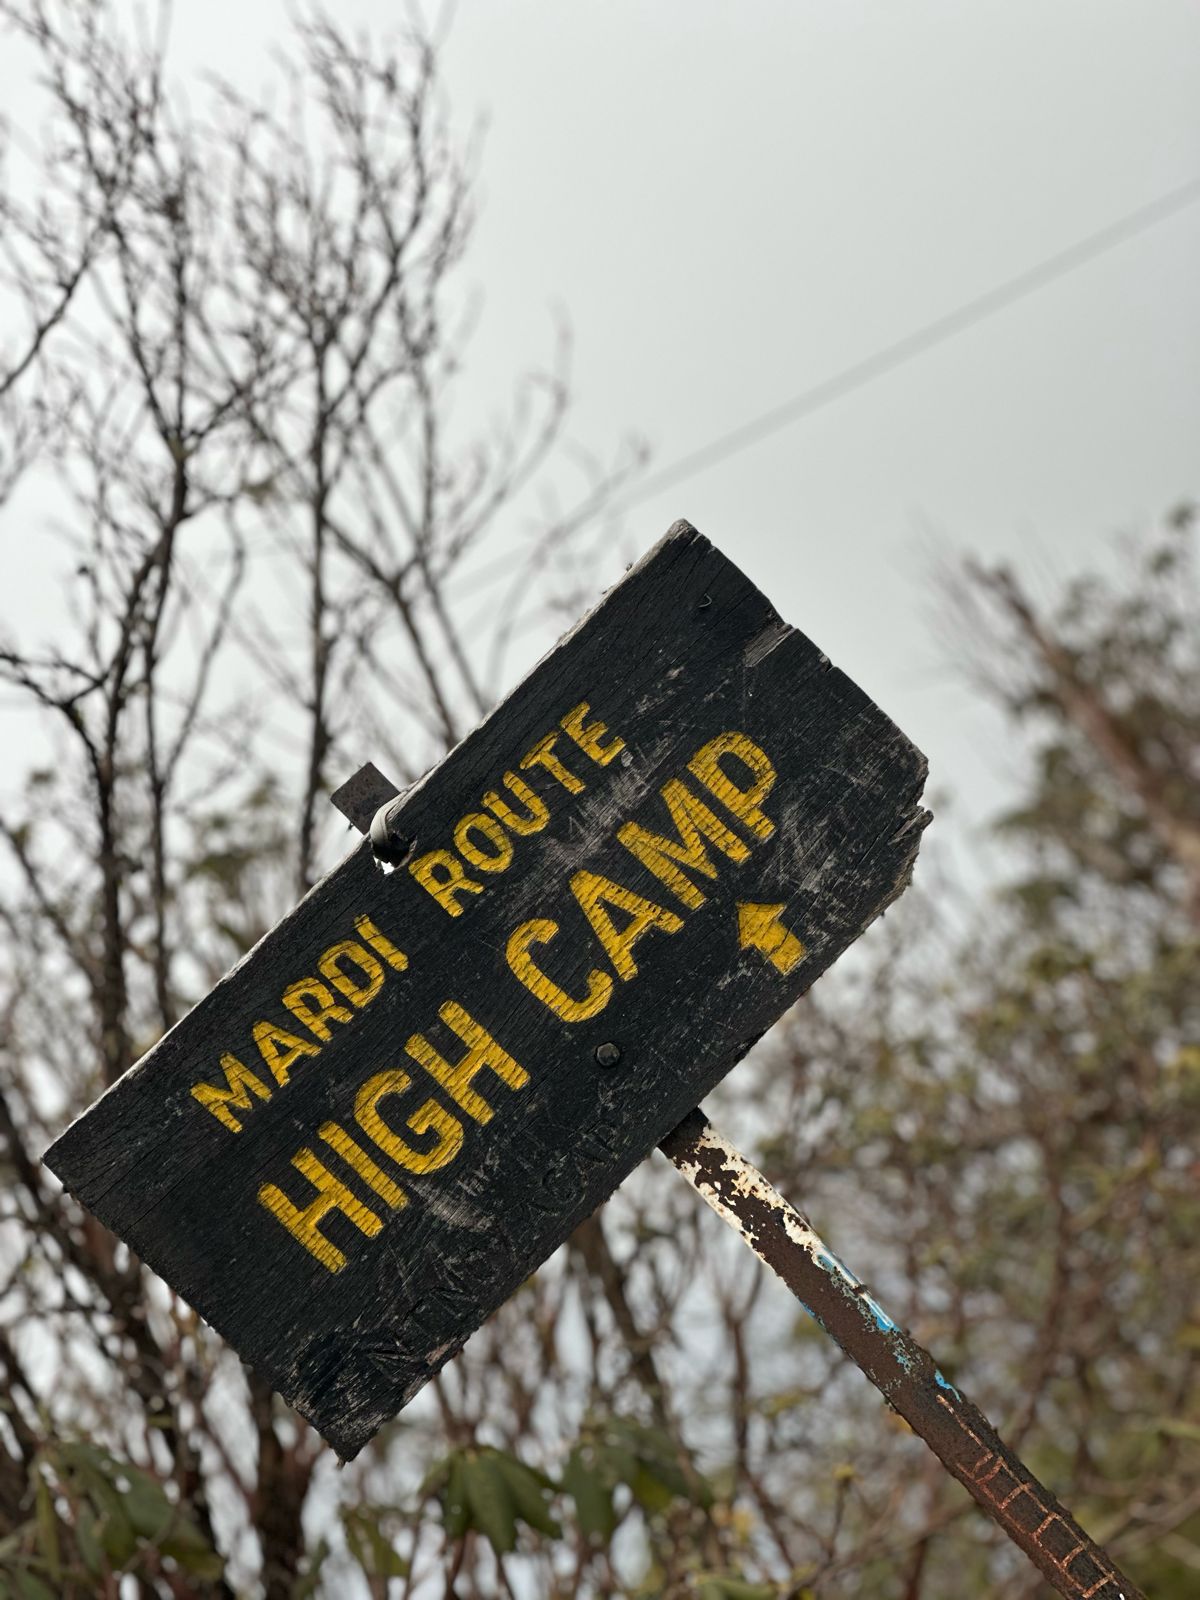 MARDI ROUTE
HIGH CAMP